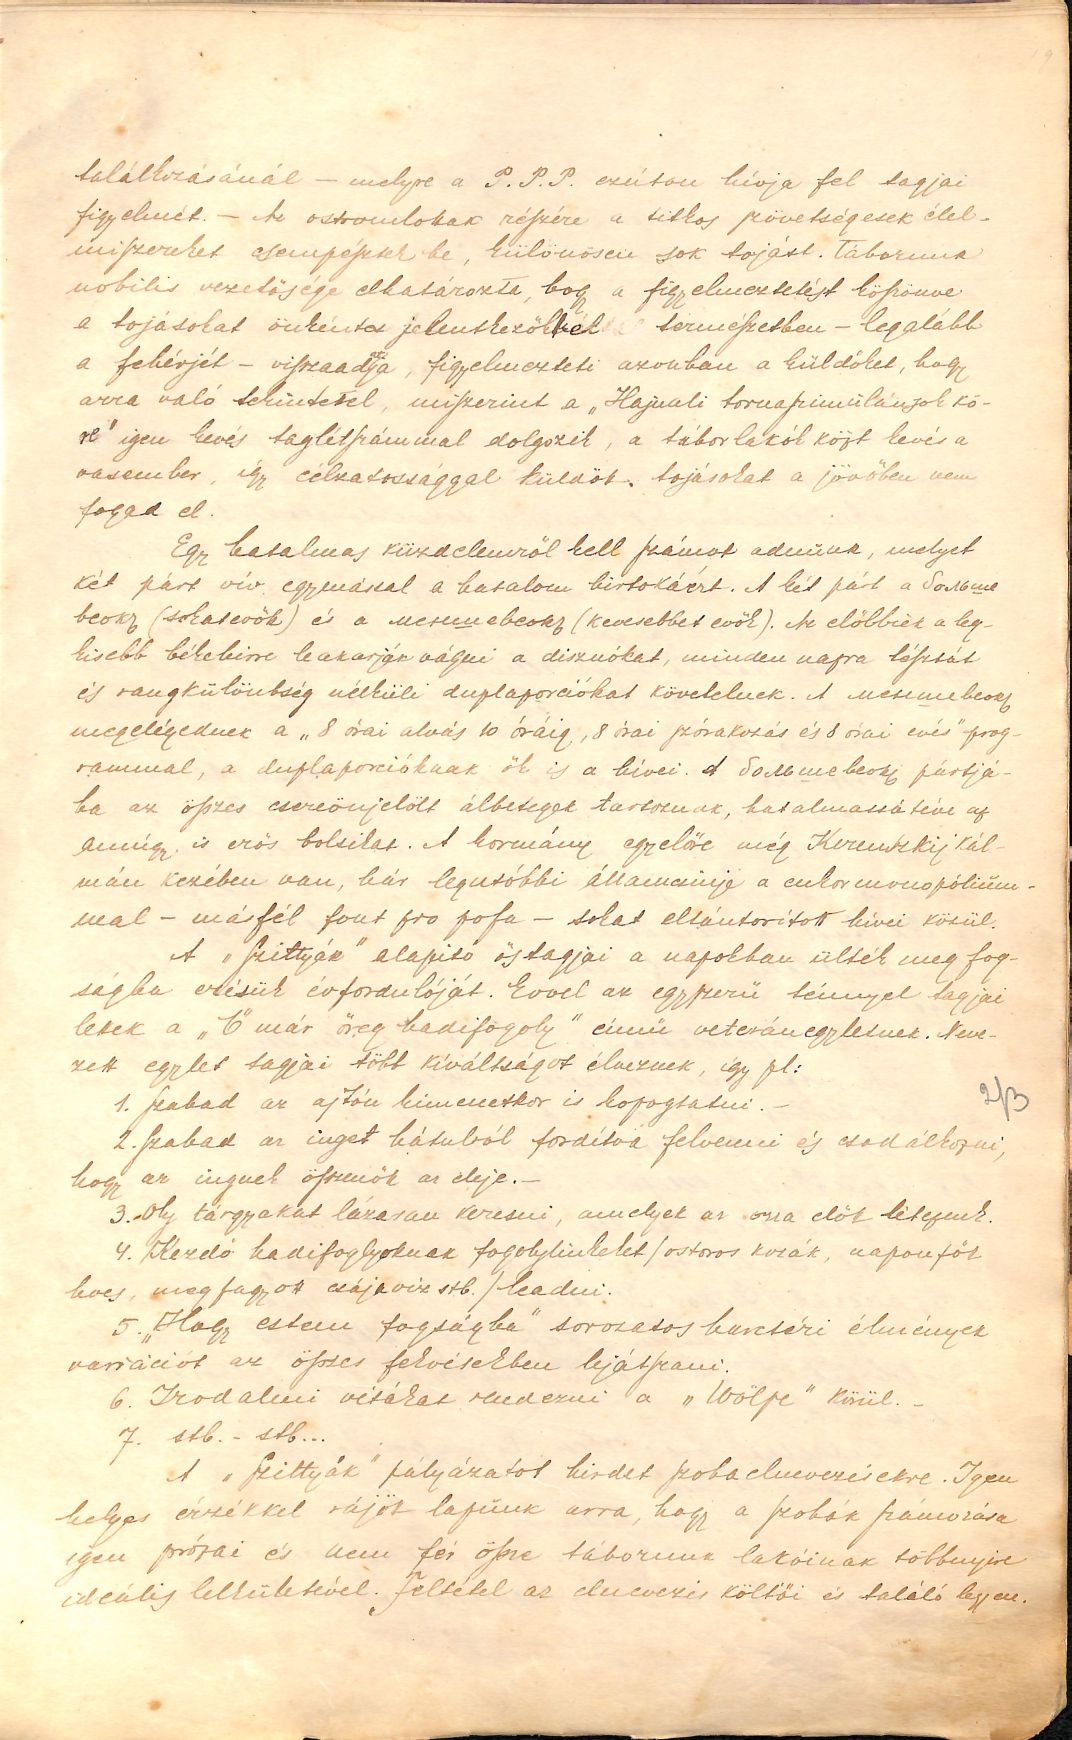 találkozásánál – melyre a P.P.P. ezúton hívja fel tagjai
figyelmét. – Az ostromlottak részére a titkos szövetségesek élel-
miszereket csempésztek be, különösen sok tojást. Táborunk
nobilis vezetősége elhatározta, hogy a figyelmeztetést köszönve
a tojásokat önkéntes jelentkezőkből természetben – legalább
a fehérjét – visszaadja, figyelmezteti azonban a küldőket, hogy
arra való tekintettel, miszerint a „Hajnali tornaszimulánsok kö-
re" igen kevés taglétszámmal dolgozik, a táborlakók közt kevés a
vasember, így célzatossággal küldött tojásokat a jövőben nem
fogad el.
Egy hatalmas küzdelemről kell számot adnunk, melyet
két párt vív egymással a hatalom birtokáért. A két párt a больше
веокц (sokatevők) és a менше веокц (kevesebbet evők). Az előbbiek a leg-
kisebb békehirre le akarják vágni a disznókat, minden napra tésztát
és rangkülönbség nélküli duplaporciókat követelnek. A менше веокц
megelégednek a „8 órai alvás 10 óráig, 8 órai szórakozás és 8 órai evés" prog-
rammal, a duplaporcióknak ők is a hívei. A больше веокц pártjá-
ba az összes csereönjelölt álbetegek tartoznak, hatalmassá téve az
amúgy is erős bolsikat. A kormány egyelőre még Kerenszkij Kál-
mán kezében van, bár legutóbbi államcsínyje a cukormonopólium-
mal – másfél font pro pofa – sokat eltántorított hívei közül.
A „Szittyák" alapító őstagjai a napokban ülték meg fog-
ságba esésük évfordulóját. Evvel az egyszerű ténnyel tagjai
lettek a „Ő már öreg hadifogoly" című veteránegyletnek. Neve-
zett egylet tagjai több kiváltságot élveznek, így pl:
1. Szabad az ajtón kimenetkor is kopogtatni. –
2. Szabad az inget hátulról fordítva felvenni és csodálkozni,
hogy az ingnek össznők az eleje. –
3. Oly tárgyakat lázasan keresni, amelyek az orra előtt léteznek.
4. Kezdő hadifoglyoknak fogolytinkeket /ostoros kozák, napon főtt
heves, megfagyott csájavíz stb./ leadni.
5. „Hogy estem fogságba" sorozatos harctéri élmények
variációt az összes fekvésekben lejátszani.
6. Irodalmi vitákat rendezni a „Wölfe" körül. –
7. stb. – stb...
2/3
A „Szittyák" pályázatot hirdet szobaelnevezésekre. Igen
helyes érzékkel rájött lapunk arra, hogy a szobák számozása
igen prózai és nem fér össze táborunk lakóinak többnyire
ideális lelkületével. Feltétel az elnevezés költői és találó legyen.